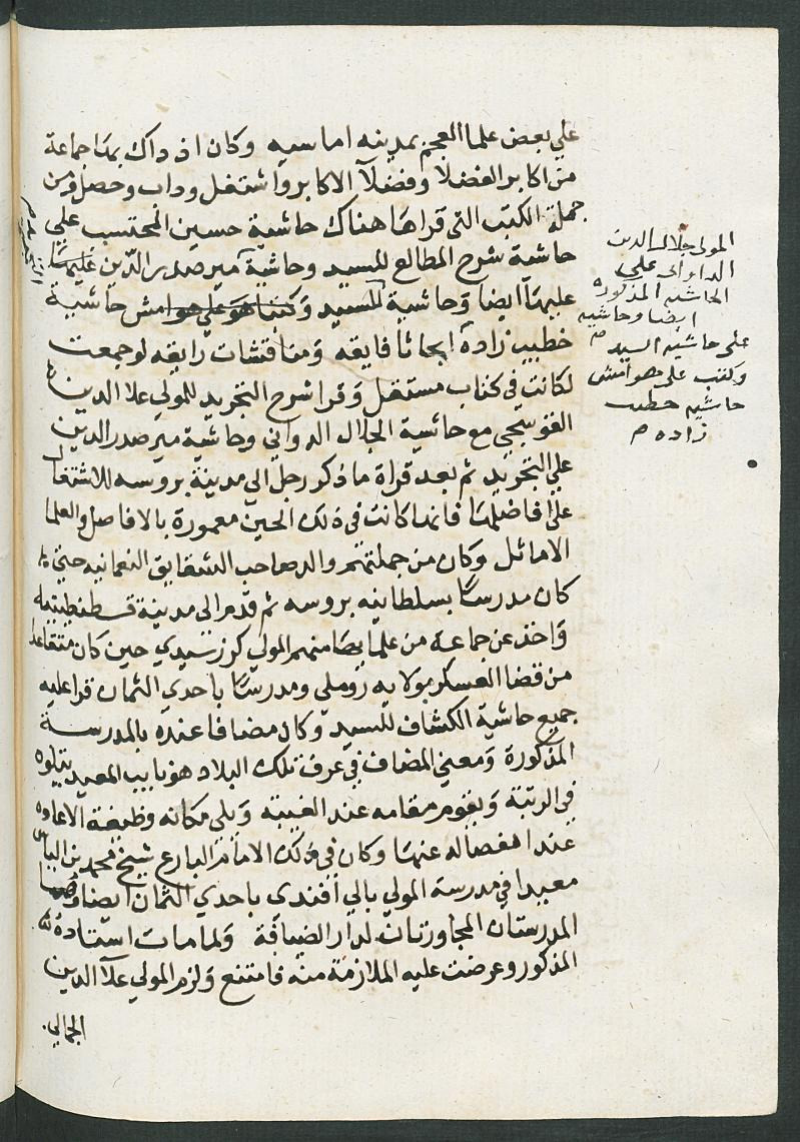 علي بعض علما العجم بمدينه اماسيه وكان اذ ذاك بها جماعة
من اكابر الفضلا وفضلآ الاكابر واشتغل وداب وحصل ومن
جملة الكتب التي قراها هناك حاشية حسين المحتسب علي
حاشية شرح المطالع للسيد وحاشية مير صدر الدين عليها
عليها ايضا وحاشية للسيد وكتبا هو علي هوامش حاشية
خطيب زاده ابحاثا فايقه ومناقشات رايقه لو جمعت
لكانت في كتاب مستقل وقرا شرح التجريد للمولي علا الدين
القوسجي مع حاشية الجلال الدواني وحاشية مير صدر الدين
علي التجريد ثم بعد قراة ما ذكر رحل الى مدينة بروسه للاشتغال
على افاضلها فانها كانت في ذلك الحين معمورة بالافاضل والعلما
الاماثل وكان من جملتهم والد صاحب الشقايق النعمانيه حين
كان مدرسا بسلطانيه بروسه ثم قدم الى مدينة قسطنطينيه
واخذ عن جماعة من علمايها منهم المولي كرز سيدي حين كان متقاعدا
من قضا العسكر بولايه روملي ومدرسا باحدي الثمان قرا عليه
جميع حاشية الكشاف للسيد وكان مضافا عنده بالمدرسة
المذكورة ومعني المضاف في عرف تلك البلاد هو نايب المعيد يتلوه
في الرتبة ويقوم مقامه عند الغيبة ويلي مكانه وظيفة الاعاده
عند انفصاله عنها وكان في ذلك الامام البارع شيخ محمد بن الياس
معيدا في مدرسة المولي بالي أفندى باحدي الثمان ايضا وهما
المدرستان المجاورتان لدار الضيافة ولما مات استاده
المذكور وعرضت عليه الملازمة منه فامتنع ولزم المولي علآ الدين
الجمالي
المولى جلال الدين
الدوانى على
الحاشيه المذكوره
ايضا وحاشيه
على حاشيه السيد
وكتب على هوامش
حاشيه خطيب
زاده م